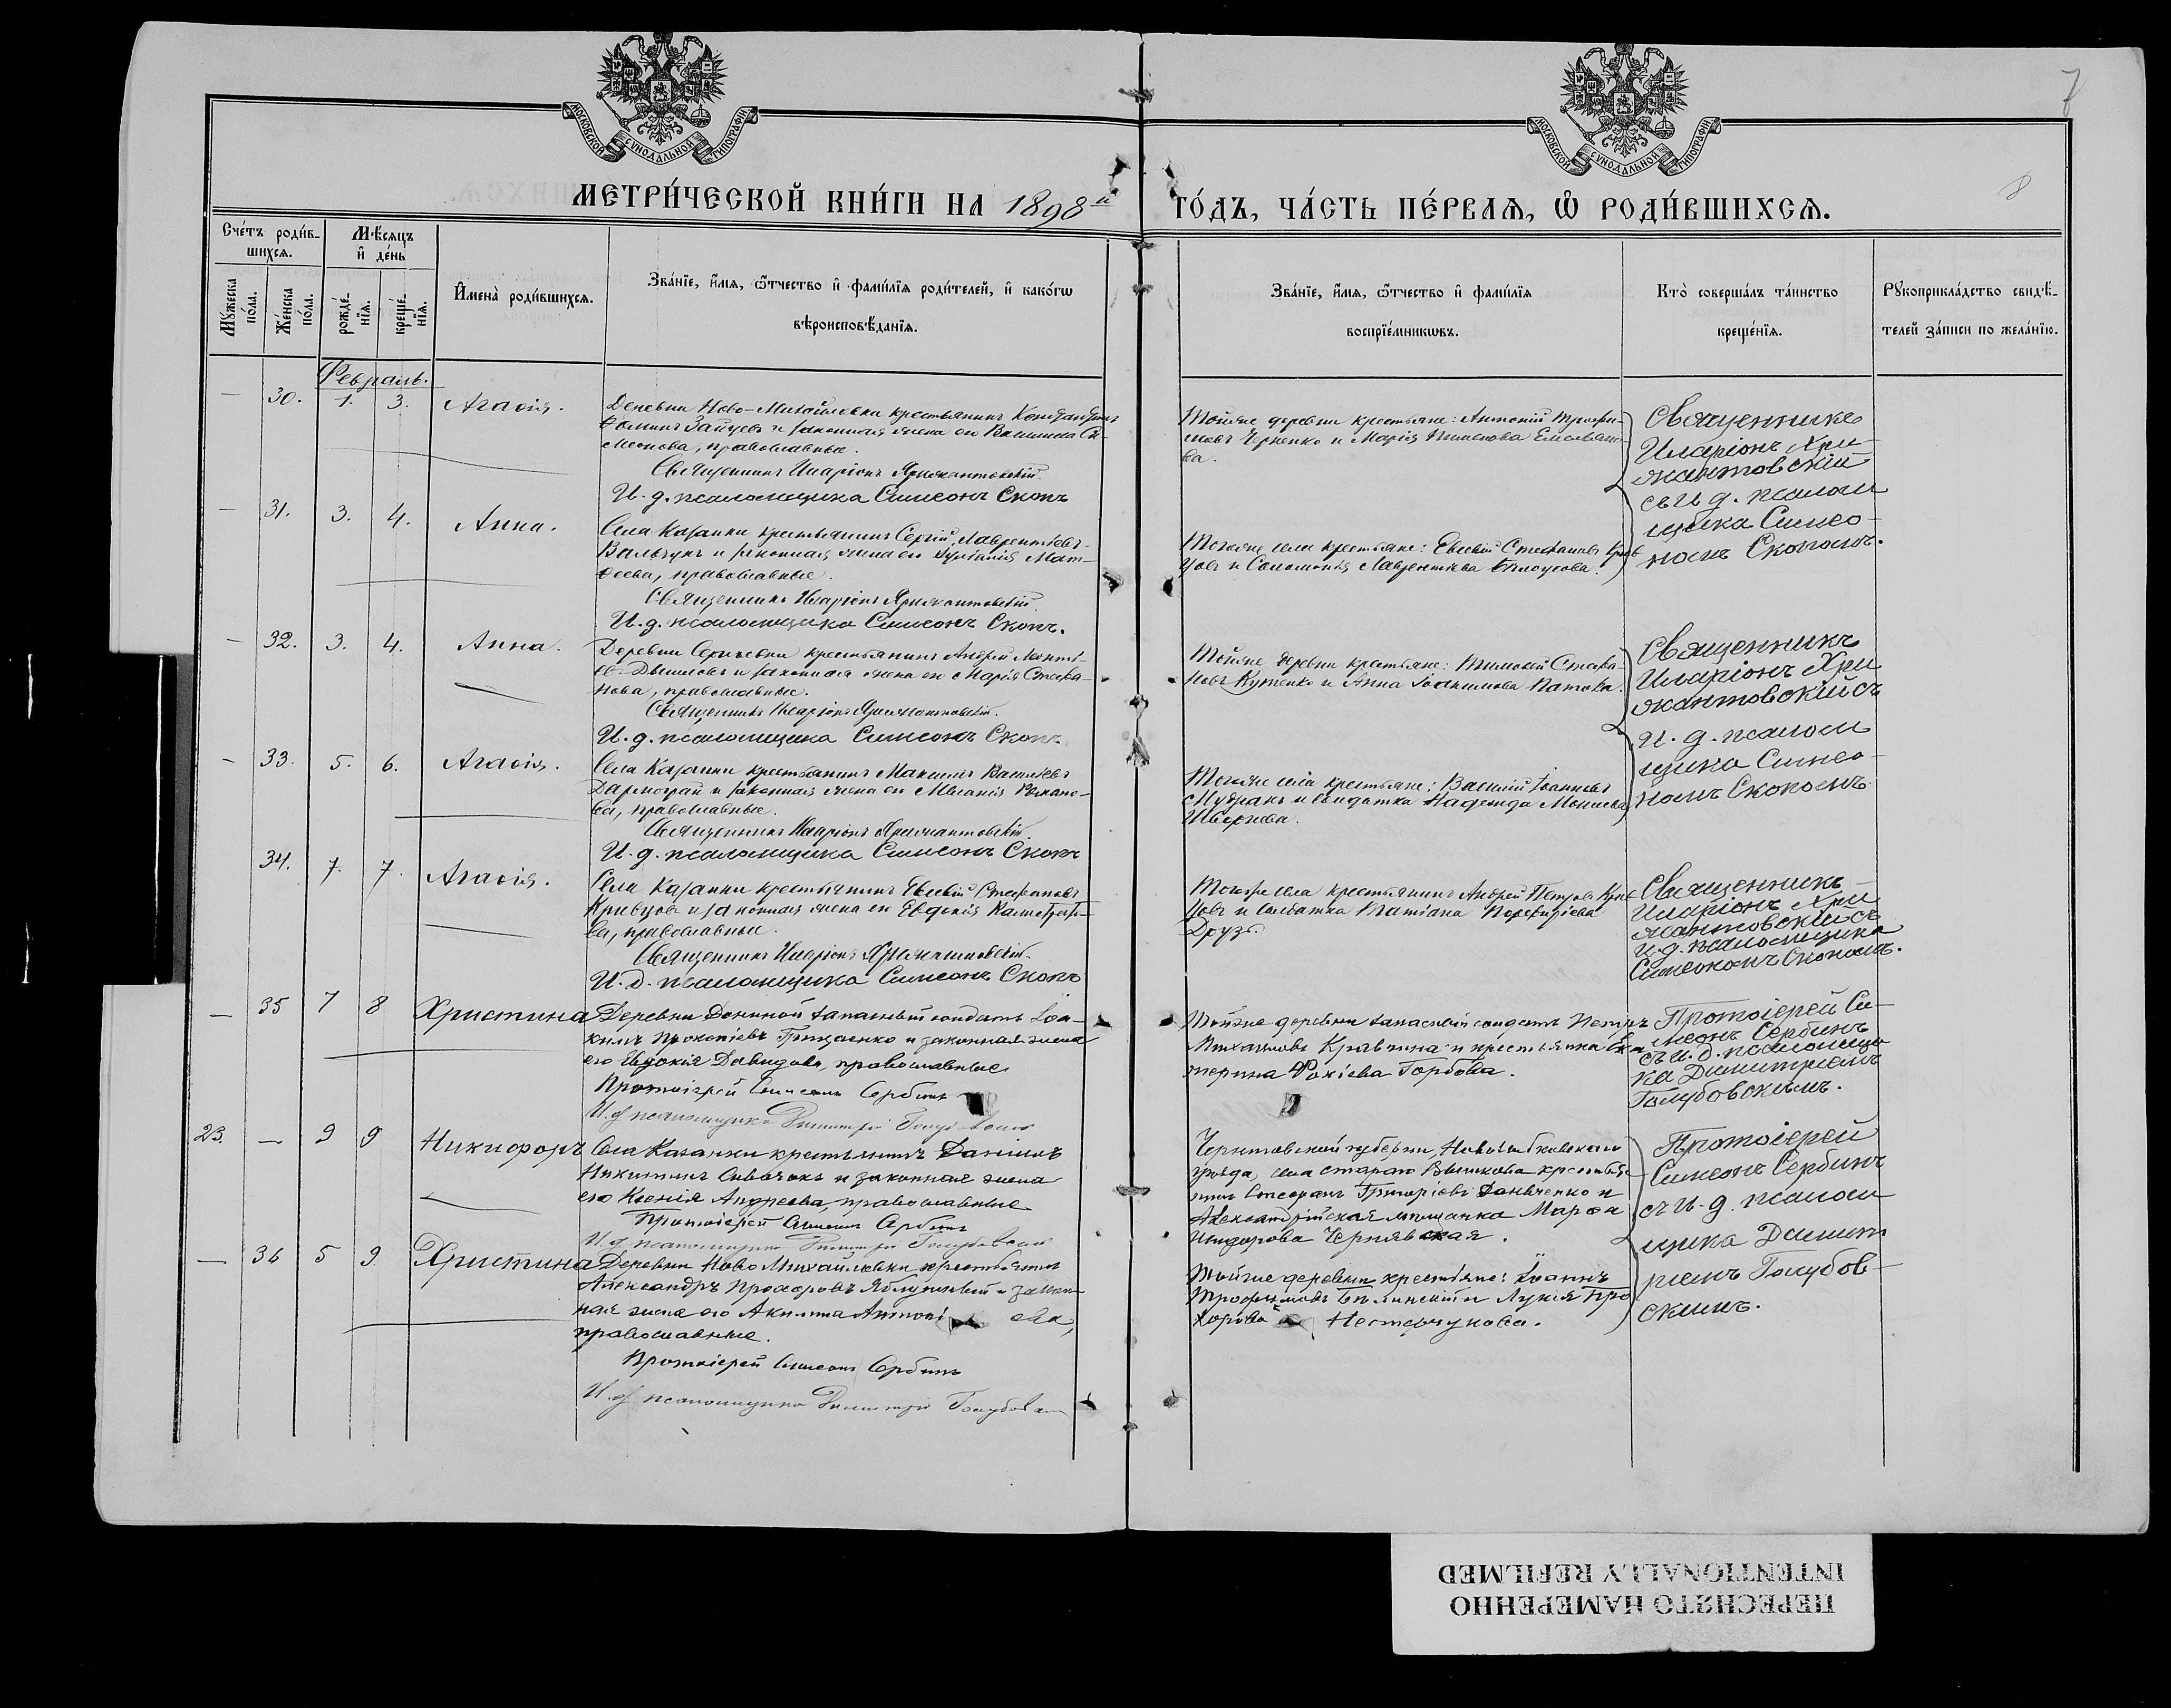 7
8
МОСКОВСКОЙ СѴНОДАЛЬНОЙ ТИПОГРАФІИ
МОСКОВСКОЙ СѴНОДАЛЬНОЙ ТИПОГРАФІИ
МЕТРИ́ЧЕСКОЙ КНИ́ГИ НА 1898й ГО́ДЪ, ЧА́СТЬ ПЕ́РВАѦ, Ѿ РОДИ́ВШИХСѦ.
Сче́тъ роди́в-
шихсѧ.
Мꙋ́жеска
по́ла.
Же́нска
по́ла.
Мѣ́сѧцъ
и҆ де́нь
рожде́-
нїѧ.
креще́-
нїѧ.
И҆мена̀ роди́вшихсѧ.
Зва́нїе, и҆́мѧ, ѻ҆́тчество и҆ фами́лїѧ роди́телей, и҆ како́гѡ
вѣроисповѣ́данїѧ.
Зва́нїе, и҆́мѧ, ѻ҆́тчество и҆ фами́лїѧ
воспрїе́мникѡвъ.
Кто̀ соверша́лъ та́инство
креще́нїѧ.
Рꙋкоприкла́дство свидѣ́-
телей за́писи по жела́нїю.
Февраль.
— 30. 1. 3. Агаѳія.
Деревни Ново-Михайловки крестьянинъ Константинъ
Ѳоминъ Зайцевъ и законная жена его Васса Си-
меонова, православные.
Священникъ Иларіонъ Хрижантовскій
И. д. псаломщика Симеонъ Скокъ
Тойже деревни крестьяне: Антоній Трофи-
мовъ Черненко и Марія
ва.
Священникъ
Иларіонъ Хри
жантовскій
съ И д. псалом
щика Симео-
номъ Скокомъ.
— 31. 3. 4. Анна.
Села Казанки крестьянинъ Сергій Лаврентіевъ
и законная жена его Мат-
ѳеева, православные.
Священникъ Иларіонъ Хрижантовскій
И. д. псаломщика Симеонъ Скокъ.
Тогоже села крестьяне: Евсевій Стефановъ Крив
цовъ и Соломонія Лаврентіева Бѣлоусова.
— 32. 3. 4. Анна.
Деревни крестьянинъ Андрей
и законная жена его Марія Стефа-
нова, православные.
Священникъ Иларіонъ Хрижантовскій.
И. д. псаломщика Симеонъ Скокъ
Тойже деревни крестьяне: Тимоѳей Стефа-
новъ Куценко и Анна Іоакимова
Священникъ
Иларіонъ Хри
жантовскій съ
И. д. псалом
щика Симео-
номъ Скокомъ
— 33. 5. 6. Агаѳія.
Села Казанки крестьянинъ Максимъ Василіевъ
Дармограй и законная жена его Меланія Романо-
ва, православные.
Священникъ Иларіонъ Хрижантовскій.
И. д. псаломщика Симеонъ Скокъ
Тогоже села крестьяне: Василій Іоанновъ
Мудракъ и солдатка Надежда
34. 7. 7. Агаѳія.
Села Казанки крестьянинъ Евсевій Стефановъ
Кривцовъ и законная жена его Евдокія Калистрато-
ва, православные.
Священникъ Иларіонъ Хрижантовскій.
И. д. псаломщика Симеонъ Скокъ
Тогоже села крестьянинъ Андрей Петровъ Крив
цовъ и солдатка Татіана Порфиріева
Друзь.
Священникъ
Иларіонъ Хри
жантовскій съ
И. д. псаломщика
Симеономъ Скокомъ.
— 35 7 8 Христина
Деревни Дониной запасный солдатъ Іоа-
кимъ Прокопіевъ Грицаенко и законная жена
его Евдокія Давидова, православные
Протоіерей Симеонъ Сербинъ
И. д. псаломщика Димитрій Голубовскій
Тойже деревни запасный солдатъ Петръ
Михаиловъ Кравчина и крестьянка Ека
терина Фокіева Горбова.
Протоіерей Си-
меонъ Сербинъ
съ и. д. псаломщи
ка Димитріемъ
Голубовскимъ.
23. — 9 9 Никифоръ
Села Казанки крестьянинъ Даніилъ
Никитинъ Сивачокъ и законная жена
его Ксенія Андреева, православные
Протоіерей Симеонъ Сербинъ
И. д. псаломщика Димитрій Голубовскій
Черниговской губерніи, Новозыбковскаго
уѣзда, села Стараго Вышкова крестья-
нинъ Стефанъ Григоріевъ Данченко и
Александрійская мѣщанка Марѳа
Исидорова Чернявская.
Протоіерей
Симеонъ Сербинъ
съ И. д. псалом
щика Димит
ріемъ Голубов-
скимъ.
— 36 5 9 Христина
Деревни Ново Михайловки крестьянинъ
Александръ Прохоровъ Яблуновый и закон-
ная жена его Акилина Антоні ева,
православные.
Протоіерей Симеонъ Сербинъ
И. д. псаломщика Димитрій Голубовскій
Тойже деревни крестьяне: Іоаннъ
Трофимовъ Бѣлинскій и Лукія Про
хорова Нестерчукова.
ПЕРЕСНЯТО НАМЕРЕННО
INTENTIONALLY REFILMED